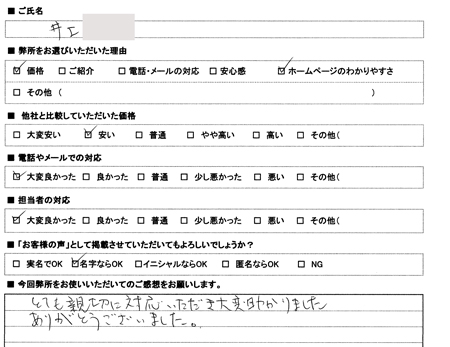 ■ ご氏名
井上
■ 弊所をお選びいただいた理由
☑ 価格 □ ご紹介 □ 電話・メールの対応 □ 安心感 ☑ ホームページのわかりやすさ
□ その他 ( )
■ 他社と比較していただいた価格
□ 大変安い ☑ 安い □ 普通 □ やや高い □ 高い □ その他(
■ 電話やメールでの対応
☑ 大変良かった □ 良かった □ 普通 □ 少し悪かった □ 悪い □ その他(
■ 担当者の対応
☑ 大変良かった □ 良かった □ 普通 □ 少し悪かった □ 悪い □ その他(
■「お客様の声」として掲載させていただいてもよろしいでしょうか?
□ 実名でOK ☑ 名字ならOK □ イニシャルならOK □ 匿名ならOK □ NG
■ 今回弊所をお使いいただいてのご感想をお願いします。
とても親切に対応いただき大変助かりました
ありがとうございました。